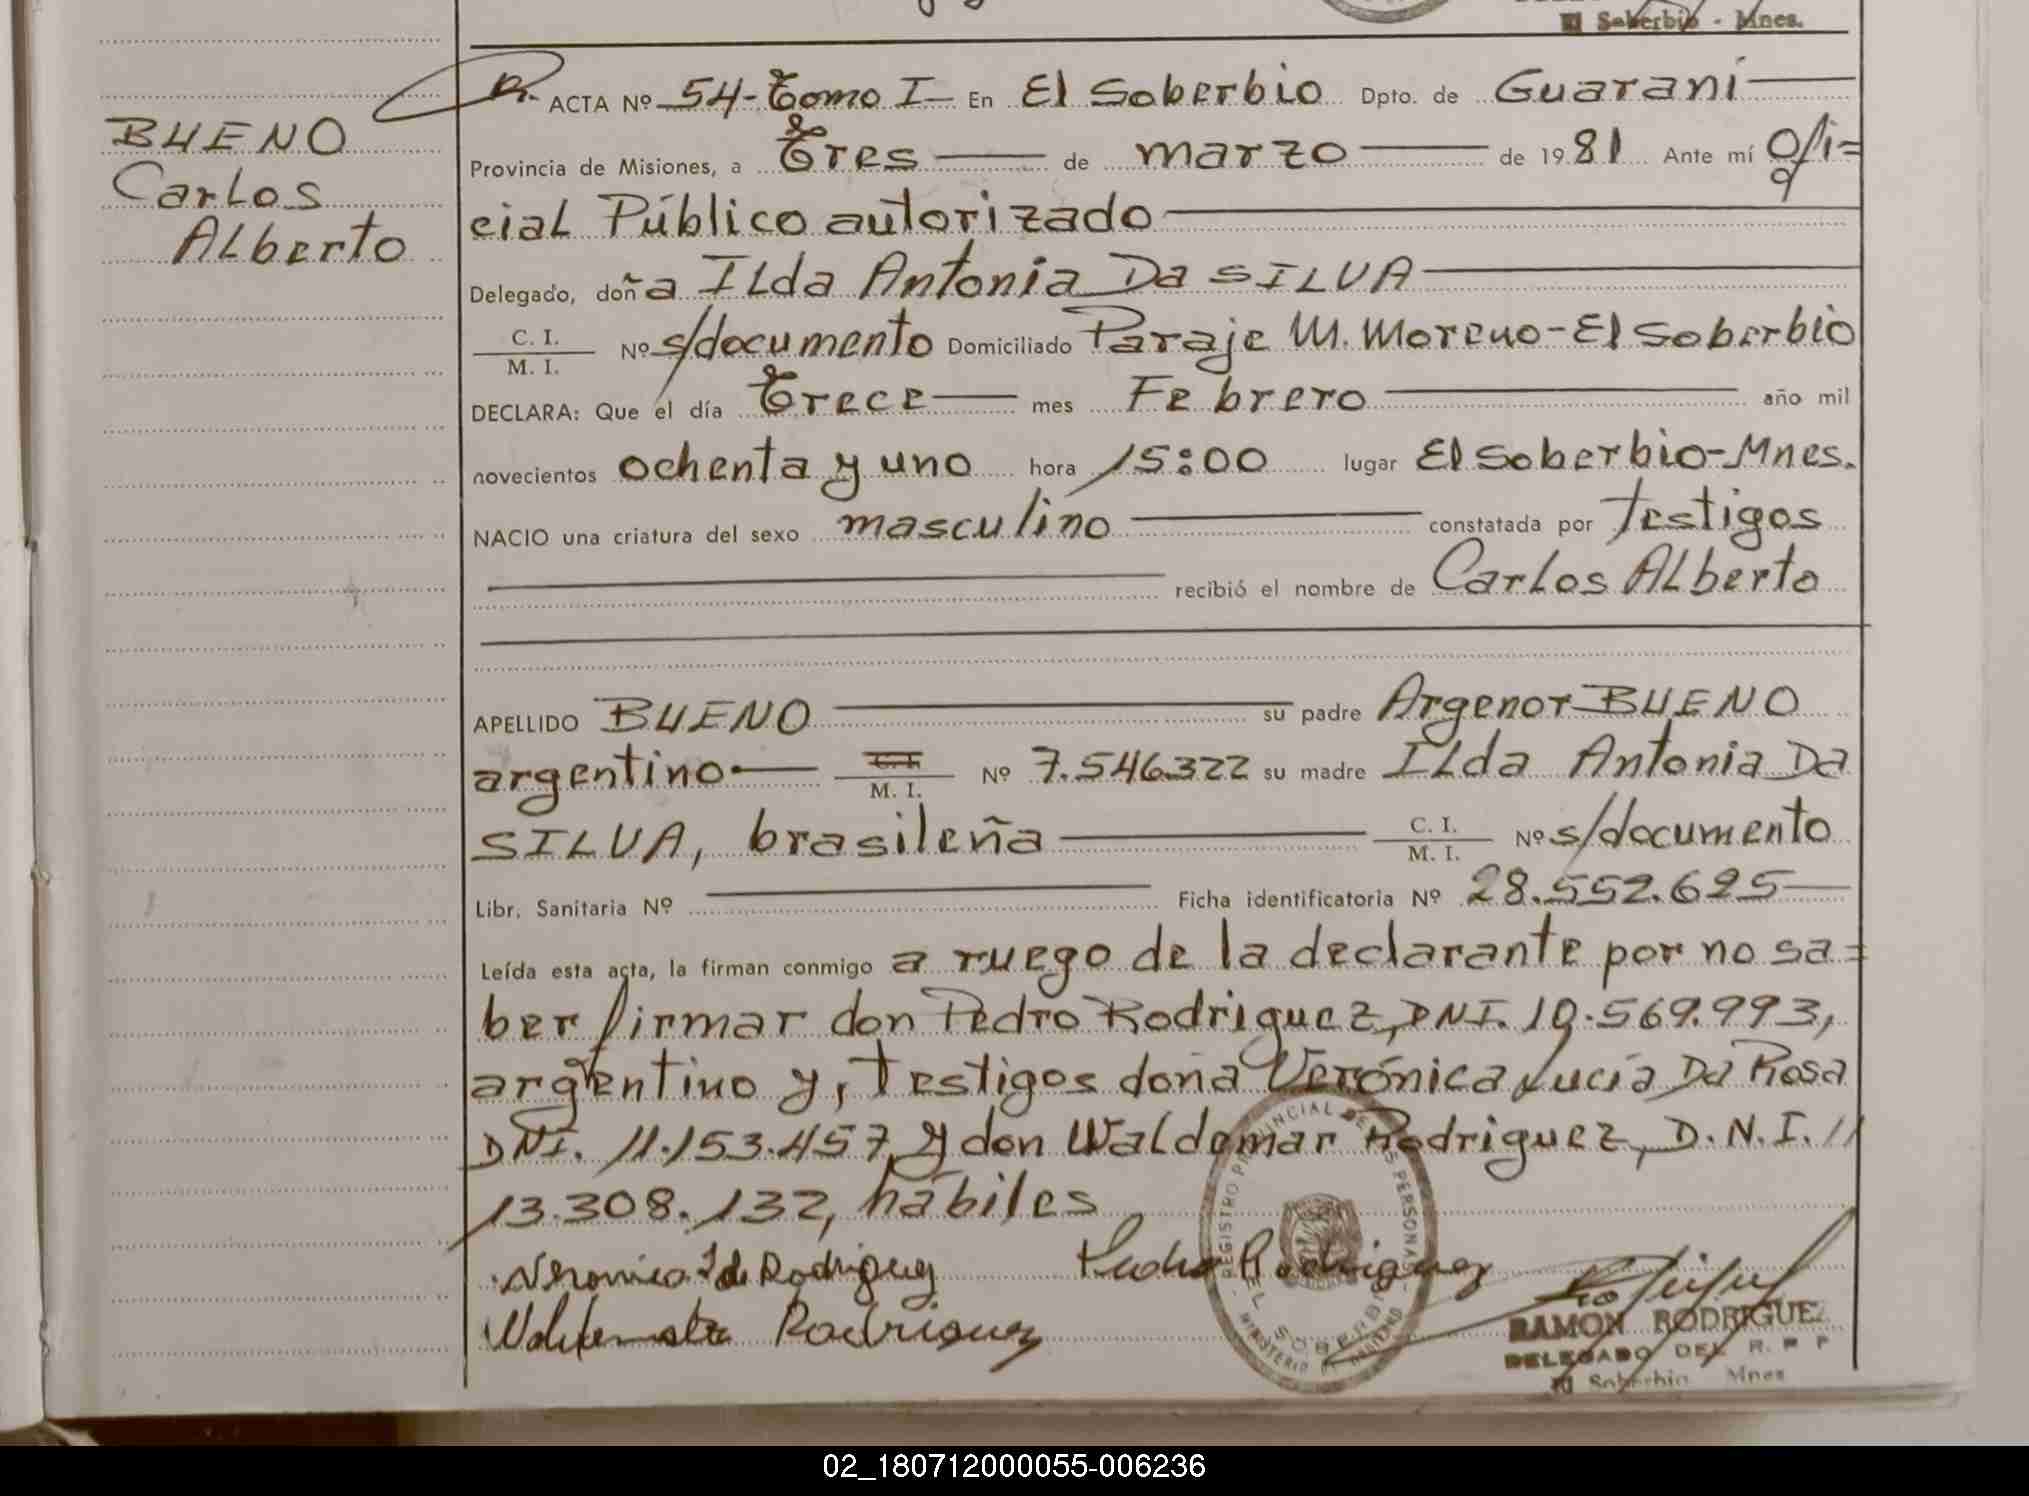 El Soberbio - Mnes.
BUENO
Carlos
ALberto
R. ACTA Nº 54-Tomo I En El Soberbio Dpto. de Guaraní
Provincia de Misiones, a Tres de marzo de 1981 Ante mí Ofi=
cial Público autorizado
Delegado, doña ILda Antonia Da SILVA
C. I.
M. I. Nº s/documento Domiciliado Paraje M. Moreno-El Soberbio
DECLARA: Que el día Trece mes Febrero año mil
novecientos ochenta y uno hora 15:00 lugar El Soberbio-Mnes.
NACIO una criatura del sexo masculino constatada por Testigos
recibió el nombre de Carlos ALberto
APELLIDO BUENO su padre Argenor BUENO
argentino M. I. Nº 7.546.322 su madre ILda Antonia Da
SILVA, brasileña C. I. M. I. Nº s/documento
Libr. Sanitaria Nº Ficha identificatoria Nº 28.552.625
Leída esta acta, la firman conmigo a ruego de la declarante por no sa=
ber firmar don Pedro Rodriguez, DNI. 10.569.993,
argentino y, Testigos doña Verónica Lucía Da Rosa
DNI. 11.153.457, y don Waldemar Rodriguez, D.N.I. //
13.308.132, hábiles
Veronica L de Rodriguez Pedro Rodriguez
Waldemar Rodriguez
REGISTRO PROVINCIAL DE LAS PERSONAS
EL SOBERBIO
MINISTERIO DE GOBIERNO
RAMON RODRIGUEZ
DELEGADO DEL R. P. P.
El Soberbio Mnes
02_180712000055-006236